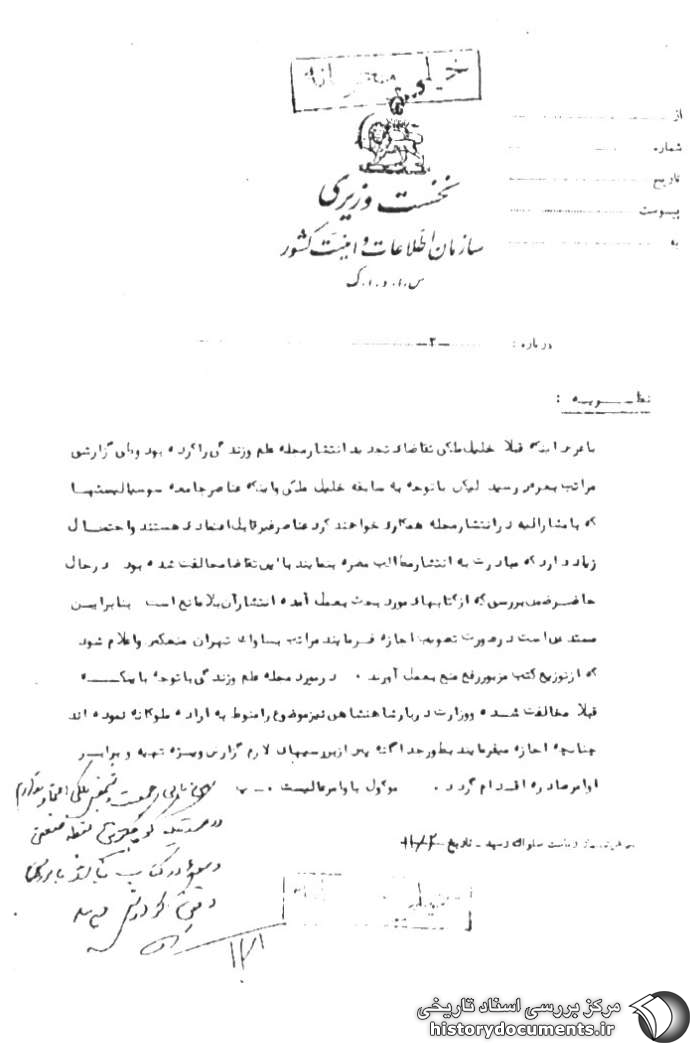 خیلی محرمانه
از
شماره
تاریخ
پیوست
به
نخست وزیری
سازمان اطلاعات و امنیت کشور
س.ا.و.ا.ک
درباره : ـ۲ـ
نظـــریــه :
با عرض اینکه قبلا خلیل ملکی تقاضای تجدید انتشار مجله علم و زندگی را کرده بود و طی گزارشی
مراتب بعرض رسید لیکن با توجه به سابقه خلیل ملکی و اینکه عناصر جامعه سوسیالیستها
که با مشارالیه در انتشار مجله همکاری خواهند کرد عناصر غیر قابل اعتمادی هستند و احتمــال
زیاد دارد که مبادرت به انتشار مطالب مضره بنمایند با این تقاضا مخالفت شده بود درحال
حاضر ضمن بررسی که از کتابهای مورد بحث بعمل آمده انتشار آن بلامانع است بنابرایــن
مستدعی است در صورت تصویب اجازه فــرمایند مراتب بساواک تهران منعکس و اعلام شود
که از توزیع کتب مزبور رفع منع بعمل آورند . در مورد مجله علم و زندگی با توجه باینکـــه
قبلا مخالفت شده و وزارت دربار شاهنشاهی نیز موضوع را منوط به اراده ملوکانه نموده اند
چنانچه اجازه میفرمایند بطور جداگانه پس از بررسیهای لازم گزارش ویژه تهیه و برابــر
اوامر صادره اقــدام گردد . موکول باوامر عالیست .
ریاست ساواک رسید ـ تاریخ
در
کتاب
۱۲/۱
خیلی محرمانه
مرکز بررسی اسناد تاریخی
historydocuments.ir